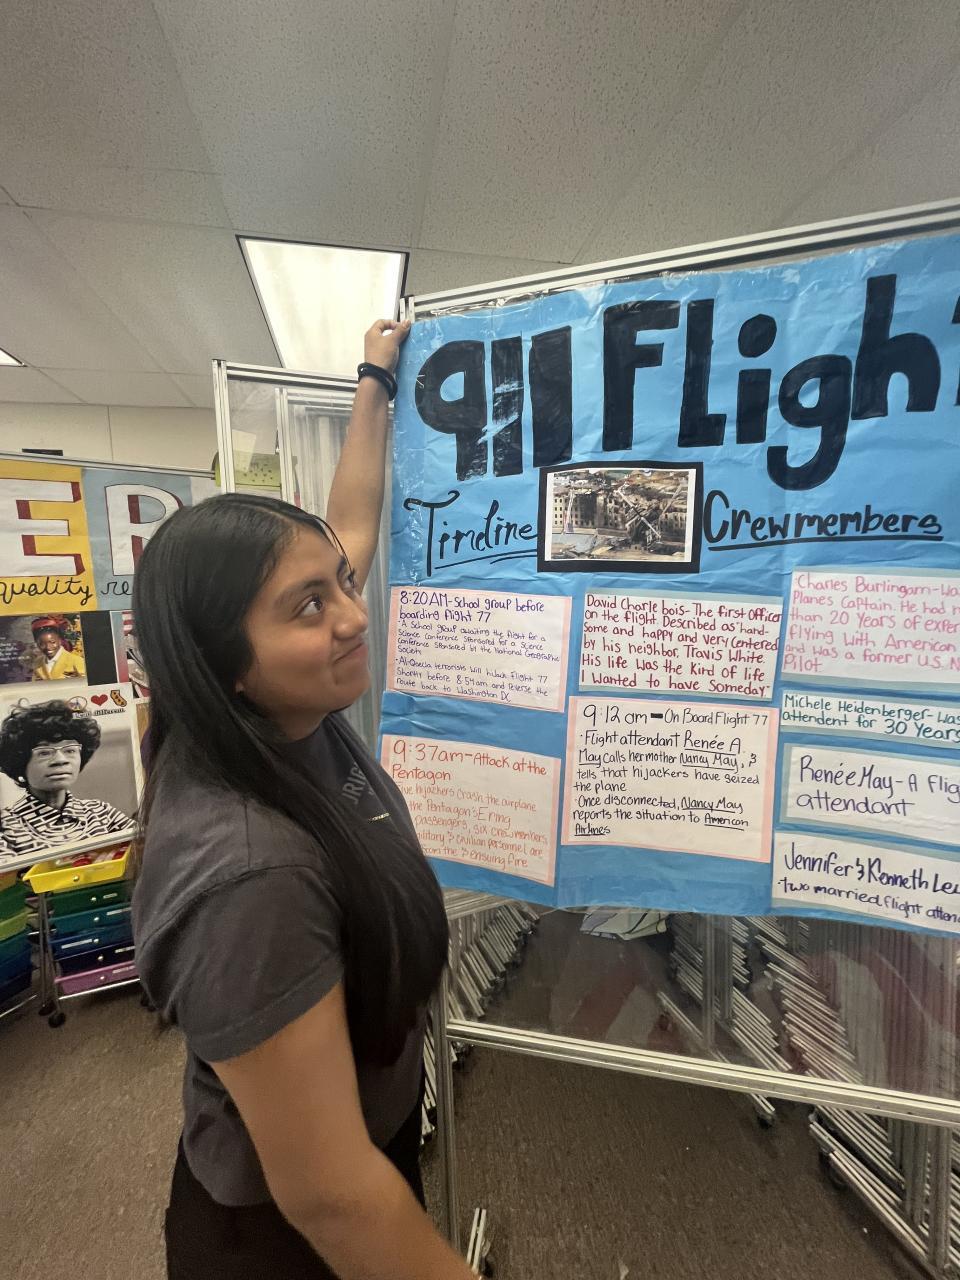 911 Flight
Timeline
Crewmembers
8:20AM-School group before
boarding flight 77
·A School group awaiting the flight for a
Science conference sponsored for a Science
Conference sponsored by the National Geographic
Society
·Al-Qaeda terrorists will hijack Flight 77
Shortly before 8:54am and reverse the
route back to Washington DC.
9:37am-Attack at the
Pentagon
Five hijackers crash the airplane
the Pentagon's E ring
passengers, six crewmembers,
military & civilian personnel are
from the & ensuing fire
David Charle bois- The first officer
on the flight. Described as "hand-
some and happy and very centered
by his neighbor, Travis White.
His life was the Kind of life
I wanted to have someday"
9:12 am-On Board Flight 77
·Flight attendant Renée A.
May calls her mother Nancy May, &
tells that hijackers have seized
the plane
·Once disconnected, Nancy May
reports the situation to American
Airlines
Charles Burlingam-Wa
Planes Captain. He had m
than 20 Years of exper
flying with American
and was a former U.S. N
Pilot
Michele Heidenberger-Was
attendent for 30 Years
Renée May-A Flig
attendant
Jennifer & Kenneth Lew
-two married flight atten
ER
quality re